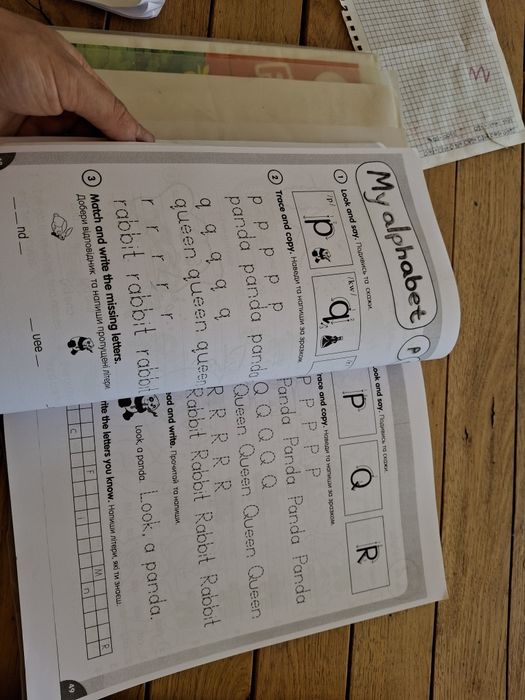 My alphabet
P
1 Look and say. Подивись та скажи.
/p/
p
/kw/
q
2 Trace and copy. Наведи та напиши за зразком.
p p p p p
panda panda panda
q q q q q
queen queen queen
r r r r r
rabbit rabbit rabbit
3 Match and write the missing letters.
Добери відповідник та напиши пропущені літери.
_ _ nd _
_ uee _
ook and say. Подивись та скажи.
P
Q
R
race and copy. Наведи та напиши за зразком.
P P P P P
Panda Panda Panda Panda
Q Q Q Q Q
Queen Queen Queen Queen
R R R R R
Rabbit Rabbit Rabbit Rabbit
ad and write. Прочитай та напиши.
Look, a panda. Look, a panda.
rite the letters you know. Напиши літери, які ти знаєш.
F
M
R
c
i
n
49